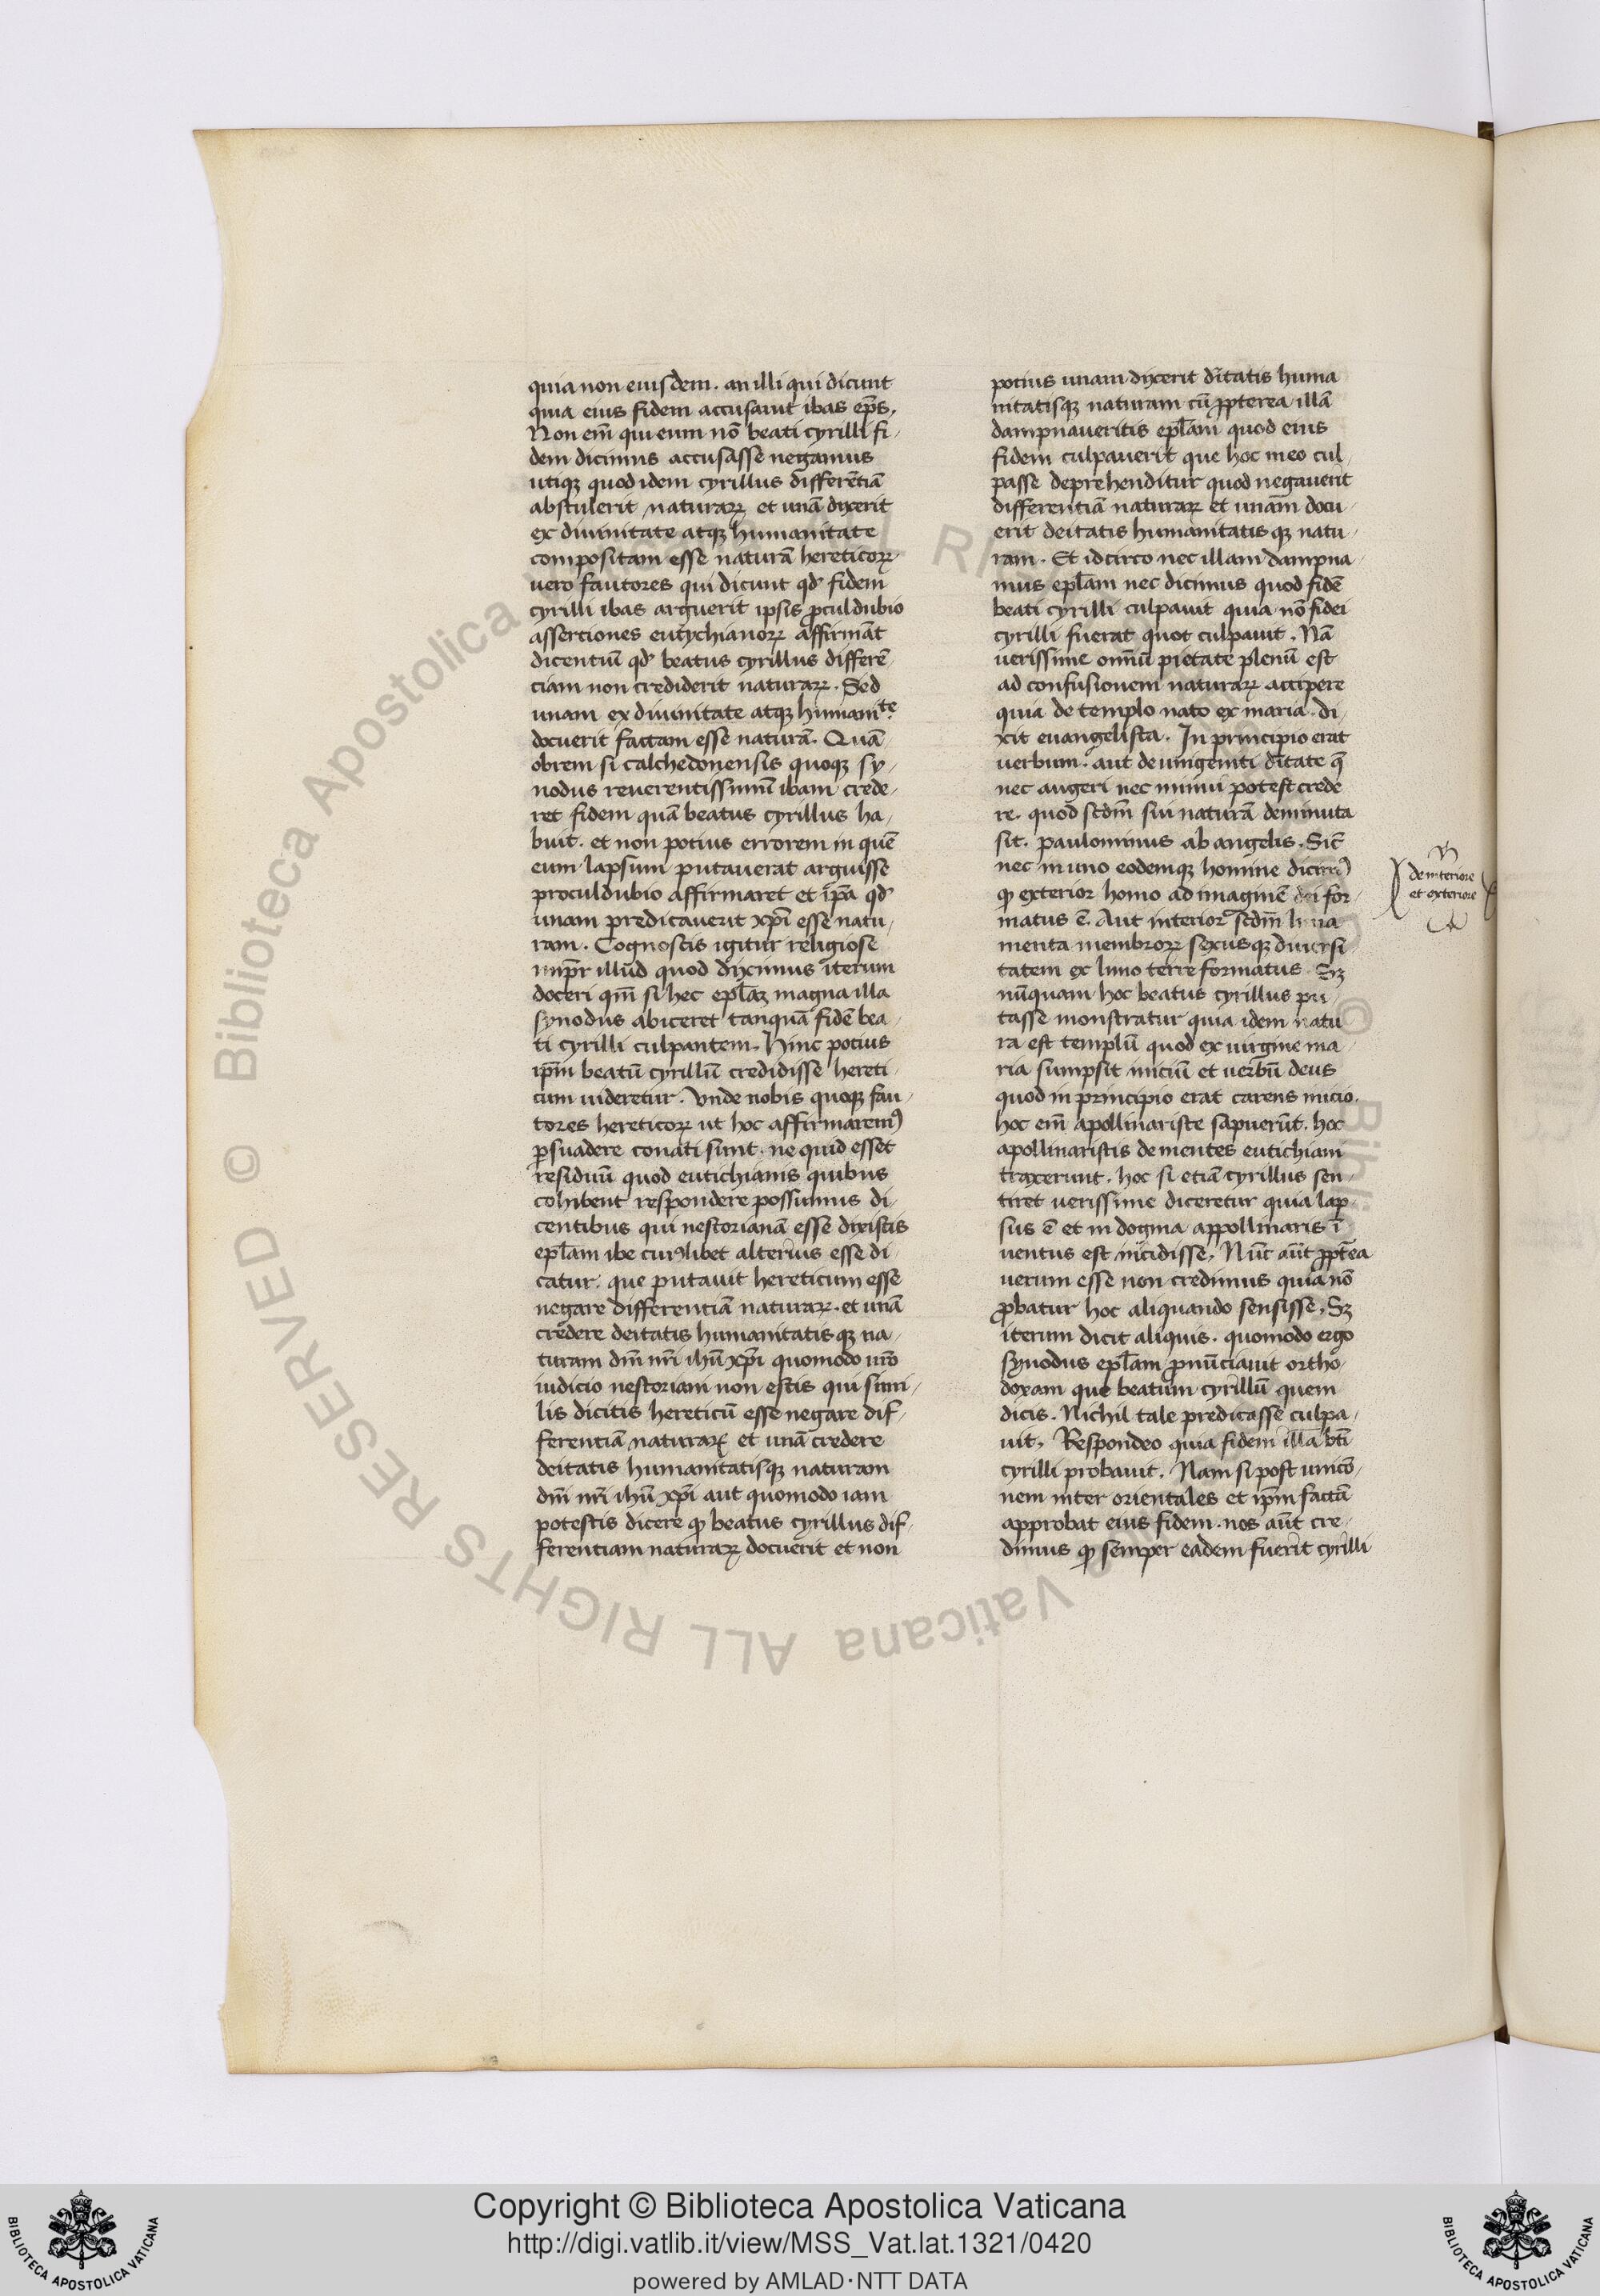 quia non eiusdem. an illi qui dicunt
quia eius fidem accusauit ibas ep̄s.
Non em̄ qui eum nō beati cyrilli fi-
dem dicimus accusasse negamus
utiqꝫ quod idem cyrillus differētiā
abstulerit naturaꝝ et unā dixerit
ex diuinitate atqꝫ humanitate
compositam esse naturā hereticoꝝ
uero fautores qui dicunt qd' fidem
cyrilli ibas arguerit ipsis ꝓculdubio
assertiones eutychianoꝝ affirmāt
dicentiū qd' beatus cyrillus differē-
ciam non crediderit naturaꝝ. Sed
unam ex diuinitate atqꝫ humanite
docuerit factam esse naturā. Quā-
obrem si calchedonensis quoqꝫ sy-
nodus reuerentissimū ibam crede-
ret fidem quā beatus cyrillus ha-
buit. et non potius errorem in quē
eum lapsum putauerat arguisse
proculdubio affirmaret et ip̄a qd'
unam predicauerit xp̄i esse natu-
ram. Cognoscis igitur religiose
imp̄r illud quod diximus iterum
doceri qm̄ si hec epl̄aꝫ magna illa
synodus abiceret tanquā fidē bea-
ti cyrilli culpantem. Hinc potius
ip̄m beatū cyrillū credidisse hereti-
cum uideretur. Vnde nobis quoqꝫ fau-
tores hereticoꝝ ut hoc affirmaremꝰ
ꝑsuadere conati sunt. ne quid esset
residuū quod eutichianis quibus
cohibent respondere possumus di-
centibus qui nestorianā esse dixistis
epl̄am ibe cuiꝰlibet alterius esse di-
catur. que putauit hereticum esse
negare differentiā naturaꝝ. et unā
credere deitatis humanitatisqꝫ na-
turam dn̄i nr̄i ihū xp̄i quomodo ur̄o
iudicio nestoriani non estis qui simi-
lis dicitis hereticū esse negare dif-
ferentiā naturaꝝ et unā credere
deitatis humanitatisqꝫ naturam
dn̄i nr̄i ihū xp̄i aut quomodo iam
potestis dicere ꝙ beatus cyrillus dif-
ferentiam naturaꝝ docuerit et non
potius unam dixerit dītatis huma
nitatisqꝫ naturam cū ꝓpterea illā
dampnaueritis epl̄am quod eius
fidem culpauerit que hoc ineo cul-
passe deprehenditur quod negauerit
differentiā naturaꝝ et unam docu-
erit deitatis humanitatis qꝫ natu-
ram. Et idcirco nec illam dampna-
mus epl̄am nec dicimus quod fidē
beati cyrilli culpauit quia nō fidei
cyrilli fuerat quot culpauit. Nā
uerissime omīū pietate plenū est
ad confusionem naturaꝝ accipere
quia de templo nato ex maria. di-
xit euangelista. In principio erat
uerbum. aut de unigeniti dītate q̄
nec augeri nec minui potest crede
re. quod scdm̄ sui naturā deminuta
sit. paulominus ab angelis. Sic
nec in uno eodemqꝫ homine dicimꝰ
ꝙ exterior homo ad imaginē dei for-
matus ē. Aut interior scdm̄ linia
menta membroꝝ sexusqꝫ diuersi-
tatem ex limo terre formatus. Sꝫ
nūquam hoc beatus cyrillus pu-
tasse monstratur quia idem natu
ra est templū quod ex uirgine ma-
ria sumpsit iniciū et uerbū deus
quod in principio erat carens inicio.
hoc em̄ apollinariste sapuerūt. hoc
apollinaristis dementes eutichiani
traxerunt. hoc si etiā cyrillus sen-
tiret uerissime diceretur quia lap-
sus ē et in dogma appollinaris ī
uentus est incidisse. Nūc aūt ꝓptea
uerum esse non credimus quia nō
ꝓbatur hoc aliquando sensisse. Sꝫ
iterum dicit aliquis. quomodo ergo
synodus epl̄am ꝓnūciauit ortho-
doxam que beatum cyrillū quem
dicis. Nichil tale predicasse culpa-
uit. Respondeo quia fidem illā bt̄i
cyrilli probauit. Nam si post unicō-
nem inter orientales et ip̄m factā
approbat eius fidem. nos aūt cre-
dimus ꝙ semper eadem fuerit cyrilli
de interiore
et exteriore
© Biblioteca Apostolica Vaticana ALL RIGHTS RESERVED
Copyright © Biblioteca Apostolica Vaticana
http://digi.vatlib.it/view/MSS_Vat.lat.1321/0420
powered by AMLAD·NTT DATA
BIBLIOTECA APOSTOLICA VATICANA
BIBLIOTECA APOSTOLICA VATICANA